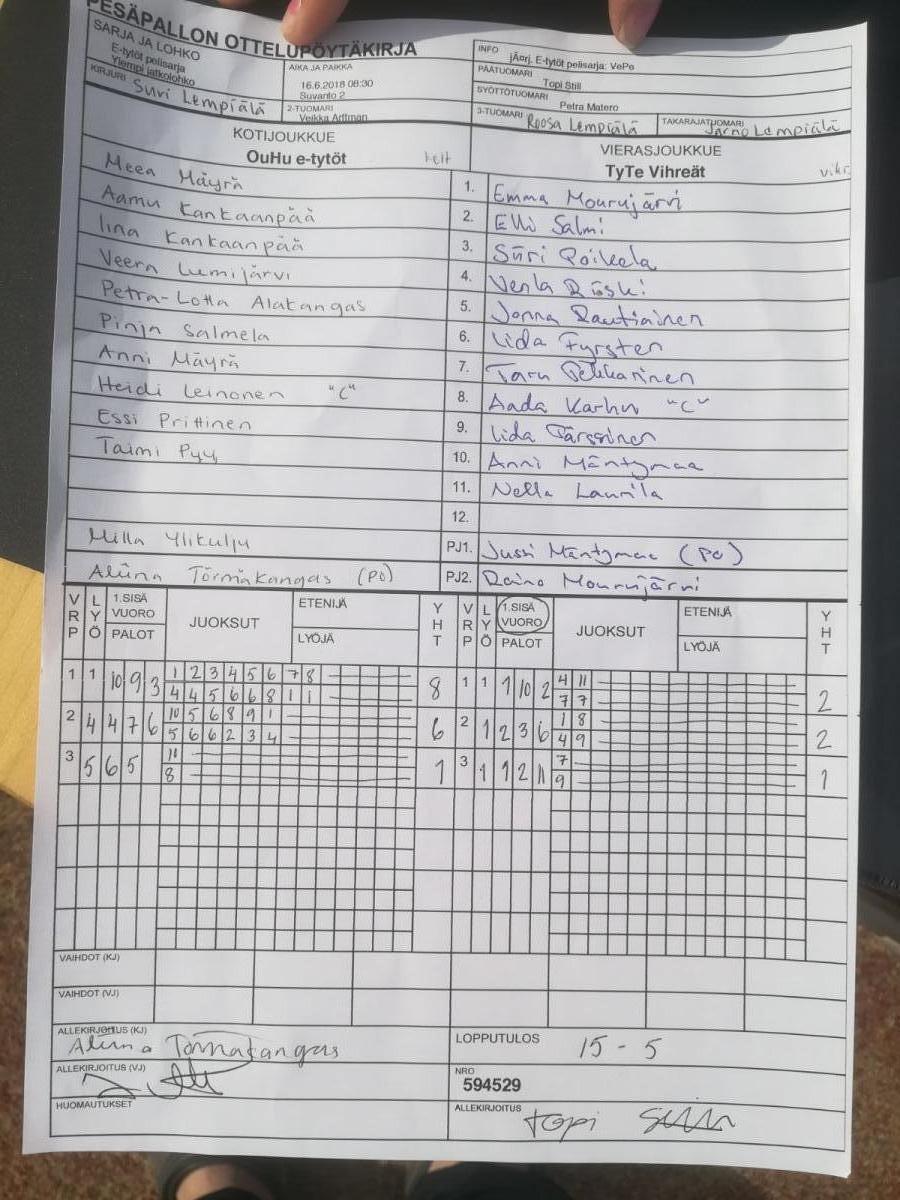 PESÄPALLON OTTELUPÖYTÄKIRJA
SARJA JA LOHKO
E-tytöt pelisarja
Ylempi jatkolohko
AIKA JA PAIKKA
16.6.2018 08:30
Suvanto 2
INFO
jÄorj. E-tytöt pelisarja: VePe
PÄÄTUOMARI
Topi Still
SYÖTTÖTUOMARI
Petra Matero
KIRJURI Suvi Lempiälä
2-TUOMARI
Veikka Arffman
3-TUOMARI Roosa Lempiälä
TAKARAJATUOMARI Jarno Lempiälä
KOTIJOUKKUE
OuHu e-tytöt
VIERASJOUKKUE
TyTe Vihreät
Meea Mäyrä 1. Emma Mourujärvi
Aamu Kankaanpää 2. Elli Salmi
Iina Kankaanpää 3. Siiri Poikela
Veera Lumijärvi 4. Venla
Petra-Lotta Alatangas 5. Jonna Rautiainen
Pinja Salmela 6. Iida Fyrsten
Anni Mäyrä 7. Taru Pekkarinen
Heidi Leinonen "C" 8. Aada Karhu "C"
Essi Prittinen 9. Iida Pärssinen
Taimi Pyy 10. Anni Mäntymaa
11. Nella Laurila
12.
Milla Ylikulju PJ1. Jussi Mäntymaa (PO)
Aliina Törmäkangas (PO) PJ2. Raino Mourujärvi
VRP LYÖ 1.SISÄ VUORO PALOT JUOKSUT ETENIJÄ LYÖJÄ YHT VRP LYÖ 1.SISÄ VUORO PALOT JUOKSUT ETENIJÄ LYÖJÄ YHT
1 1 10 9 3 1 2 3 4 5 6 7 8 8 1 1 1 10 2 4 11 2
4 4 5 6 6 8 1 1 7 7
2 4 4 7 6 10 5 6 8 9 1 6 2 1 2 3 6 1 8 2
5 6 6 2 3 4 4 9
3 5 6 5 10 1 3 1 1 2 11 7 1
8 9
VAIHDOT (KJ)
VAIHDOT (VJ)
ALLEKIRJOITUS (KJ)
Aliina Törmäkangas
LOPPUTULOS 15 - 5
ALLEKIRJOITUS (VJ)
NRO
594529
HUOMAUTUKSET
ALLEKIRJOITUS Topi Still